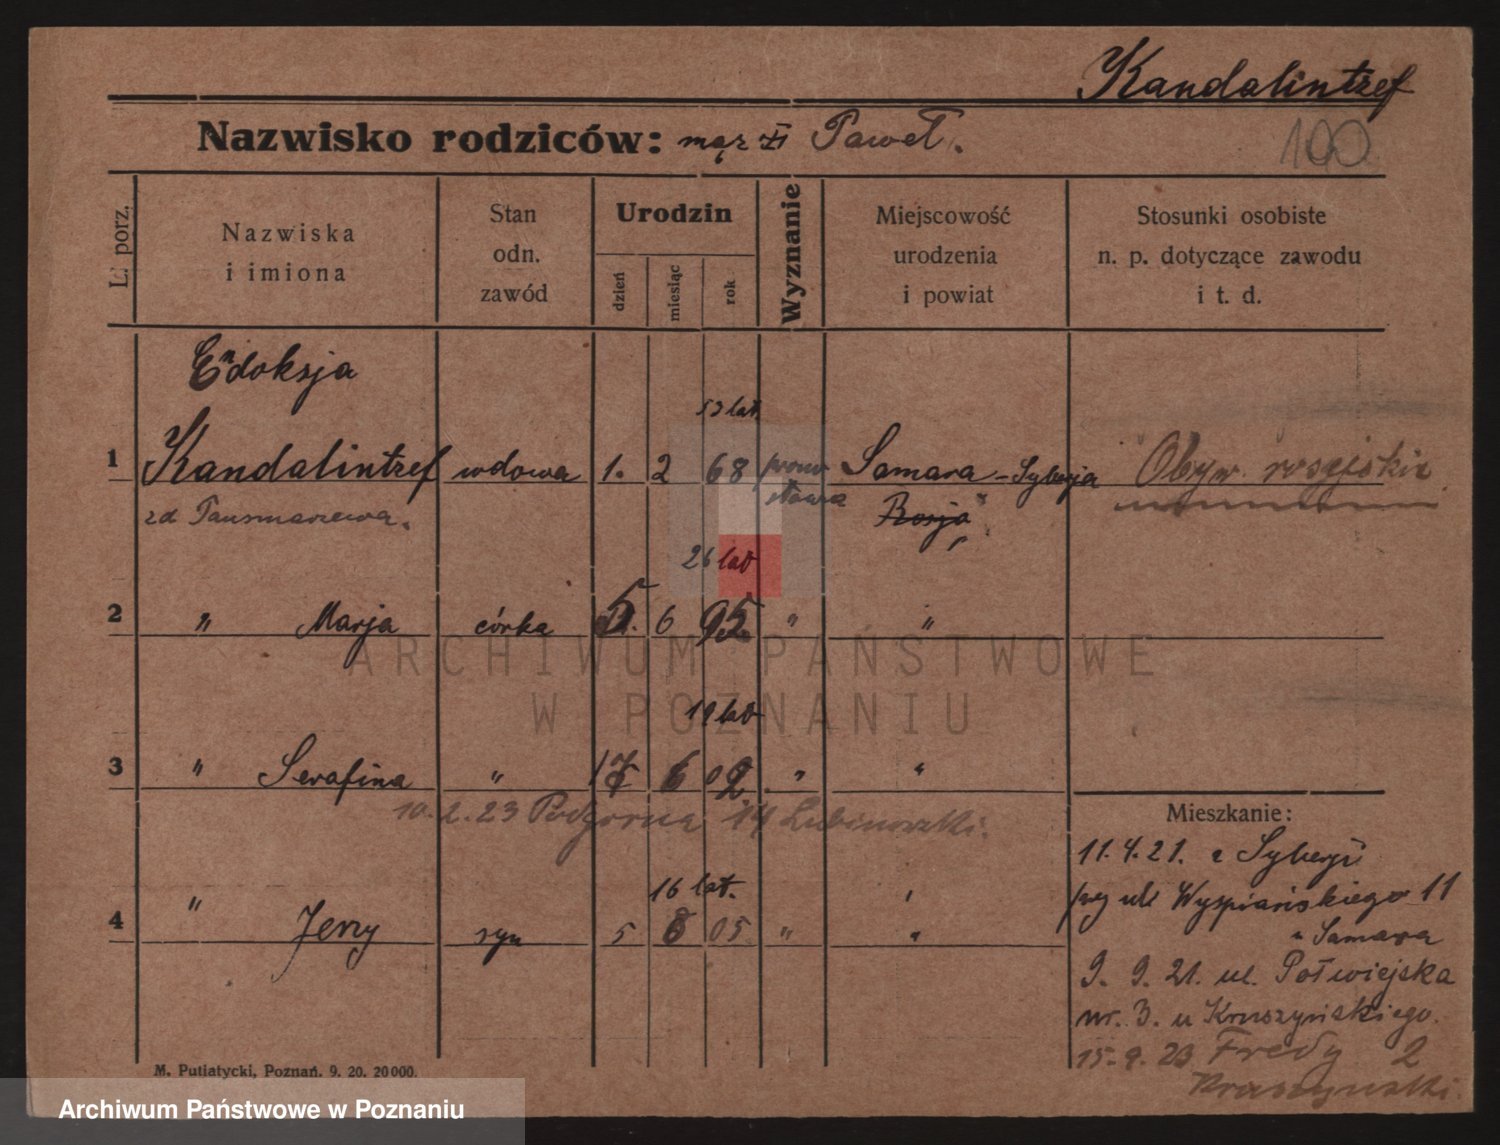 Kandalintzef
Nazwisko rodziców: mąż Paweł.
100
L. porz.
Nazwiska
i imiona
Stan
odn.
zawód
Urodzin
dzień
miesiąc
rok
Wyznanie
Miejscowość
urodzenia
i powiat
Stosunki osobiste
n. p. dotyczące zawodu
i t. d.
Endoksja
53 lat.
1 Kandalintzef wdowa 1. 2 68 prawo Samara - Syberja Obyw. rosyjskie
zd sławna Rosja
26 lat
2 " Marja córka 5. 6 95 " "
19 lat
3 " Serafina " 17 6 02 " "
10.2.23 Podgorna 14
16 lat.
4 " Jerzy syn 5 8 05 " "
Mieszkanie:
11.4.21. z Syberji
przy ul. Wyspiańskiego 11
Samara
9. 9. 21. ul. Półwiejska
nr. 3. u Kruszyńskiego.
15.9.23 Fredy 2
Kraszynski.
M. Putiatycki, Poznań. 9. 20. 20000.
ARCHIWUM PAŃSTWOWE
W POZNANIU
Archiwum Państwowe w Poznaniu